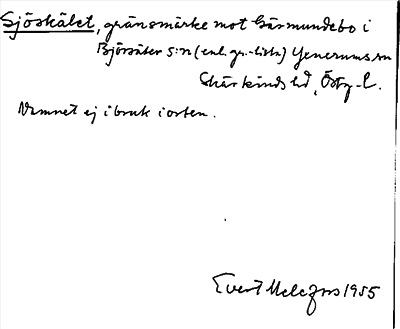 Sjöskälet, gränsmärke mot Gärmundebo i
Björsäter s:n (enl. gr.-lista) Yxnerums sn
Skärkinds hd, Östg. l.
Namnet ej i bruk i orten.
Evert Melefors 1955